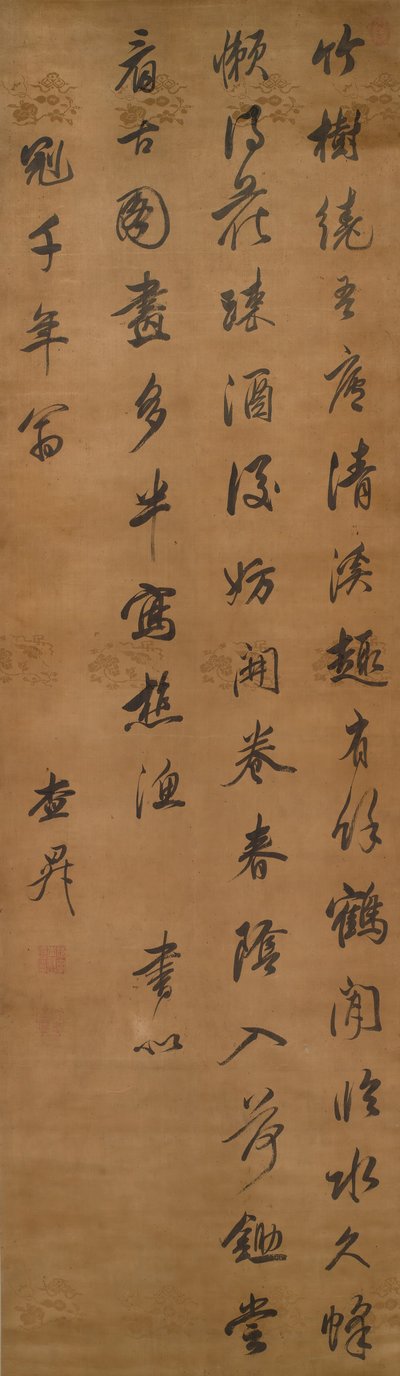 竹樹繞吾廬清溪趣有餘鶴閒臨水久蜂
懶得花踈酒後妨開卷春陰入荷鋤嘗
看古圖畫多半寫樵漁 書似
冠千年翁 查昇